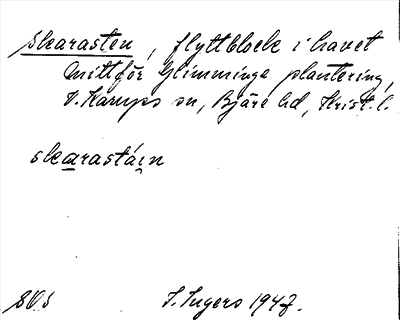 Skarasten, flyttblock i havet
mittför Glimminge plantering,
V. Karups sn, Bjäre hd, Krist. l.
skarastáin
SOS
I. Ingers 1947.